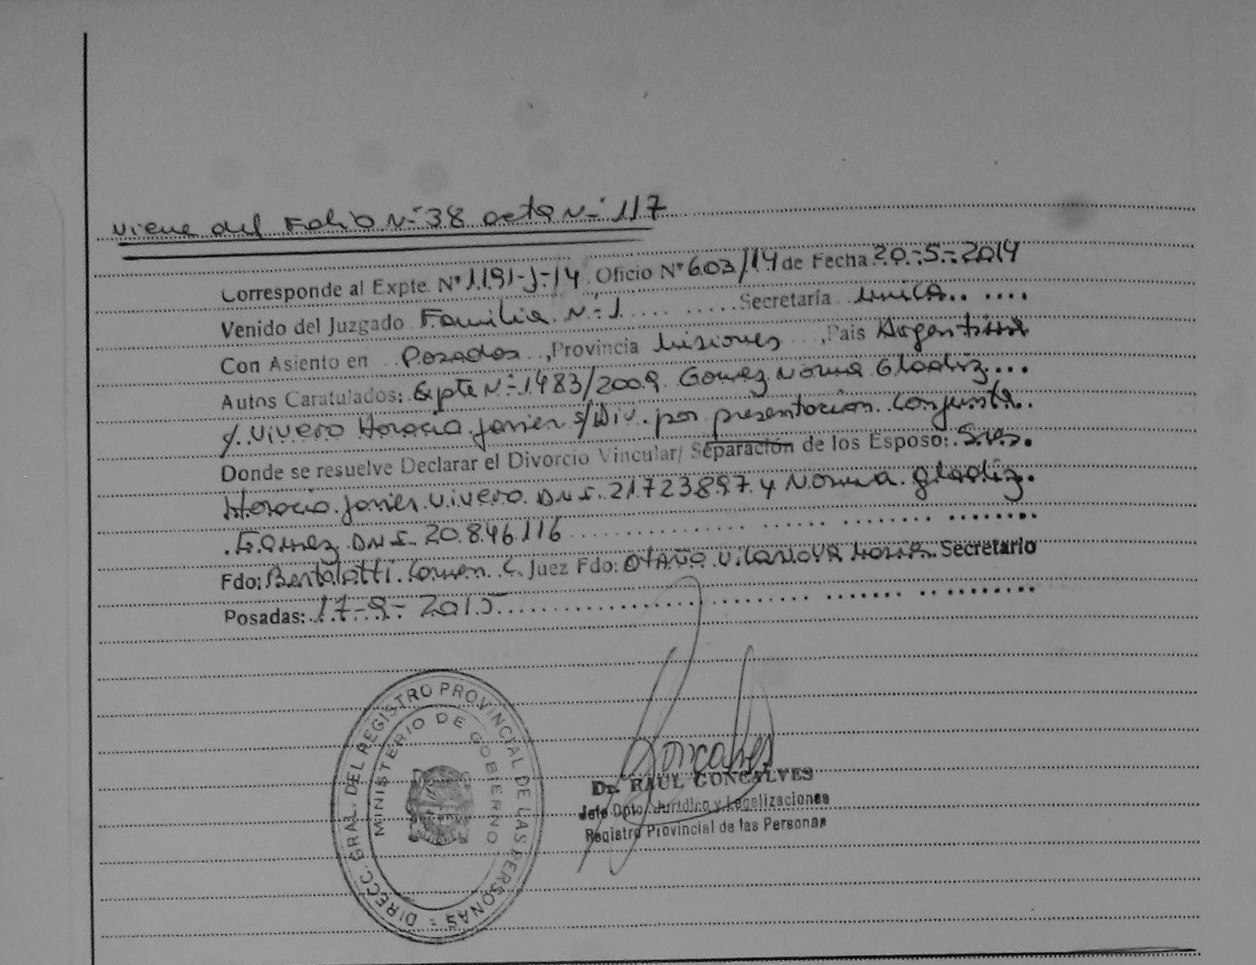 Viene del Folio N-38 acta N-117
Corresponde al Expte. Nº 1191-J-14 Oficio Nº 603/14 de Fecha 20-5-2014
Venido del Juzgado Familia N-1 Secretaría única
Con Asiento en Posadas, Provincia Misiones, País Argentina
Autos Caratulados: Expte N-1483/2009. Gomez Norma Gladiz
y Vivero Horacio Javier s/Div. por presentacion conjunta.
Donde se resuelve Declarar el Divorcio Vincular/ Separación de los Esposo: Sres.
Horacio Javier Vivero DNI. 21.723.897 y Norma Gladiz
Gomez DNI. 20.846.116
Fdo: Bertolotti Carmen C. Juez Fdo: Otaño Vilanova María Secretario
Posadas: 17-9-2015
DIRECC. GRAL. DEL REGISTRO PROVINCIAL DE LAS PERSONAS
MINISTERIO DE GOBIERNO
Goncalves
Dr. RAUL GONCALVES
Jefe Dpto. Jurídico y Legalizaciones
Registro Provincial de las Personas